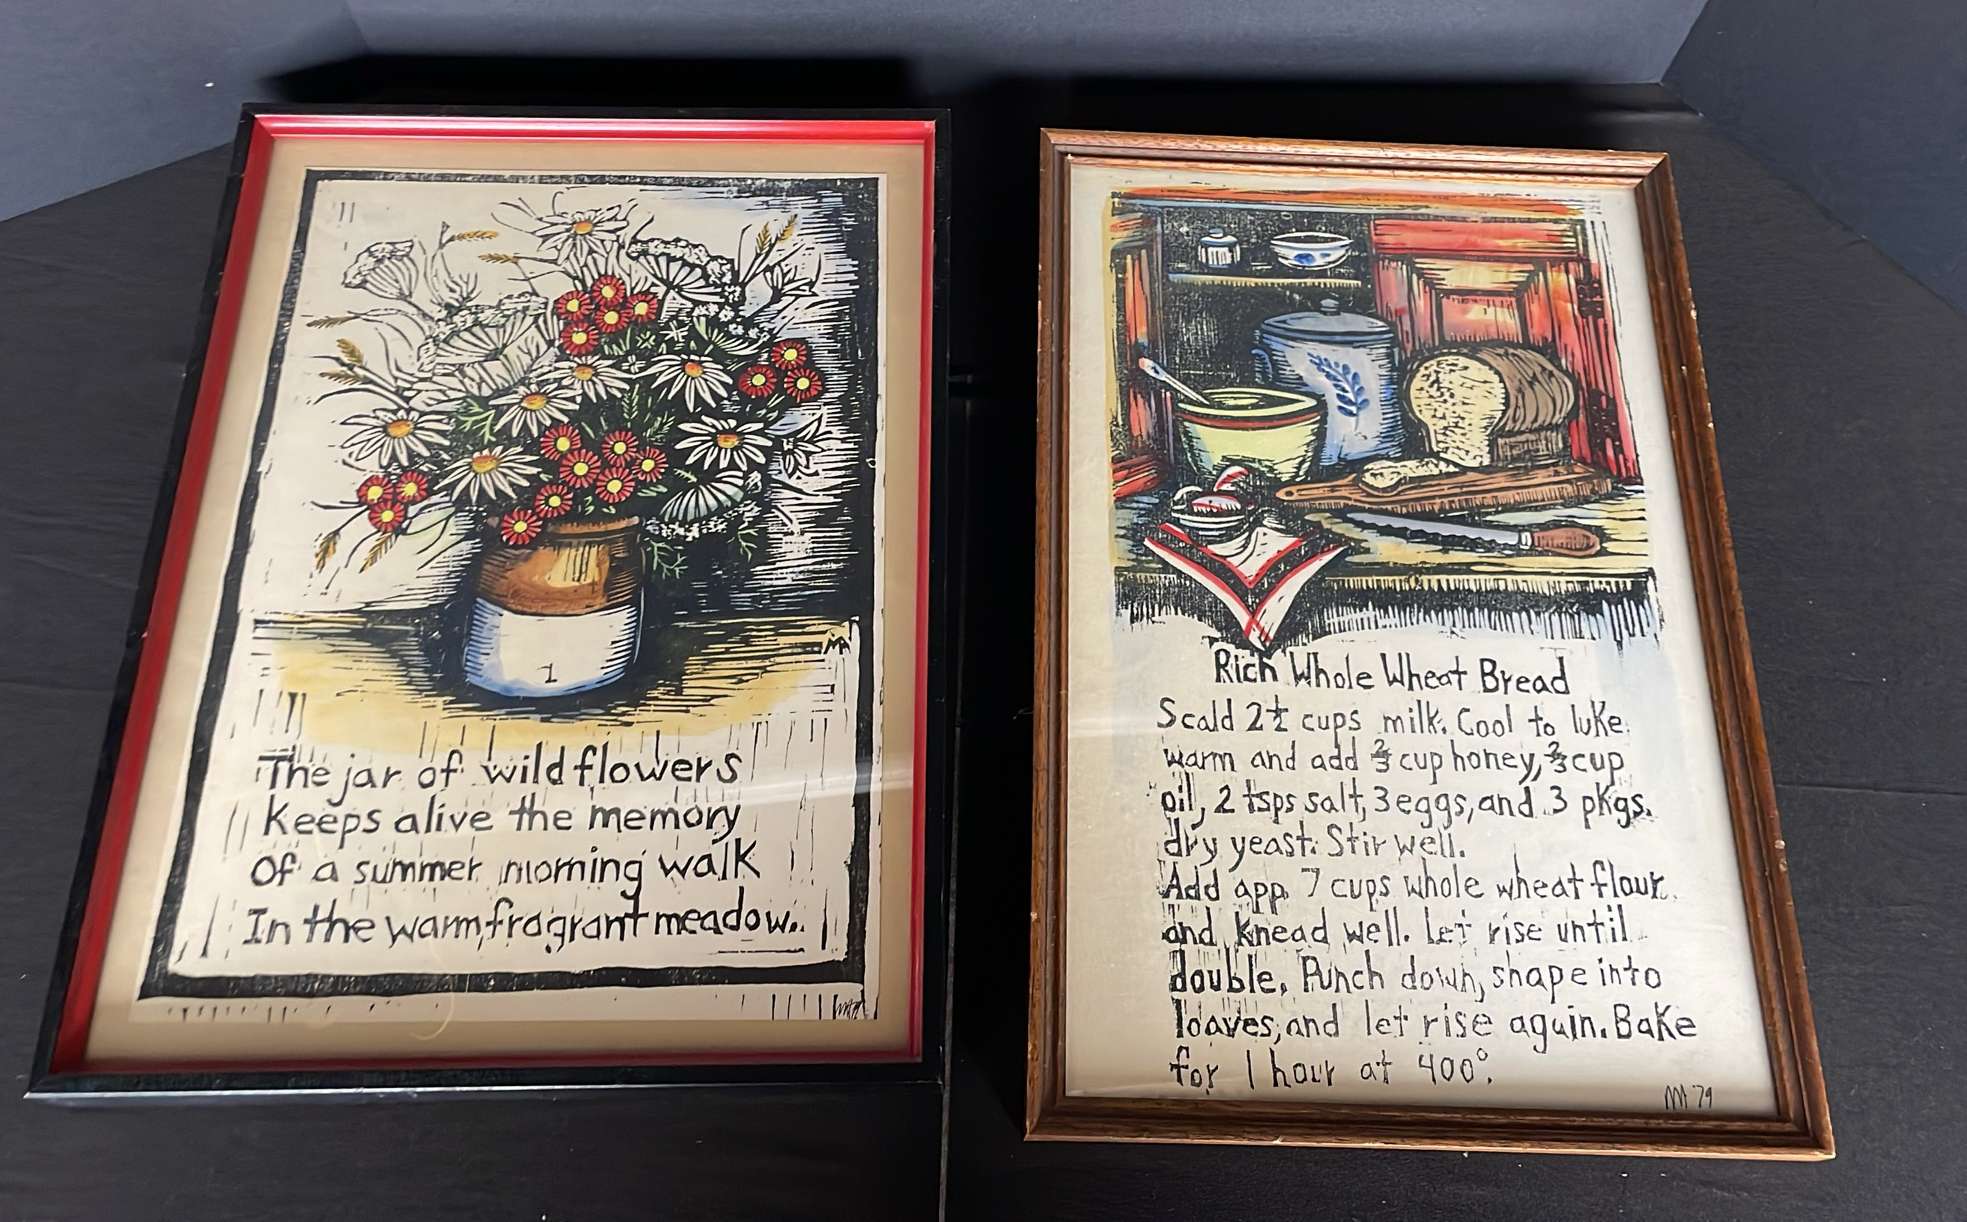 1
The jar of wildflowers
Keeps alive the memory
Of a summer morning walk
In the warm, fragrant meadow.
Rich Whole Wheat Bread
Scald 2½ cups milk. Cool to luke
warm and add ⅔ cup honey, ⅔ cup
oil, 2 tsps salt, 3 eggs, and 3 pkgs.
dry yeast. Stir well.
Add app. 7 cups whole wheat flour
and knead well. Let rise until
double. Punch down, shape into
loaves, and let rise again. Bake
for 1 hour at 400°.
M '79